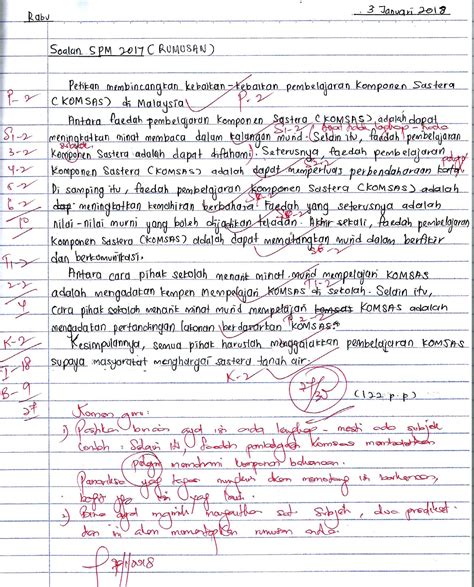 Rabu
3 Januari 2018
Soalan SPM 2017 (RUMUSAN)
Petikan membincangkan kebaikan-kebaikan pembelajaran Komponen Sastera
P-2 (KOMSAS) di Malaysia. P-2
Antara faedah pembelajaran Komponen Sastera (KOMSAS) adalah dapat
S1-2 meningkatkan minat membaca dalam kalangan murid. S1-2 Selain itu, faedah pembelajaran
3-2 Komponen Sastera adalah dapat difahami. Seterusnya faedah pembelajaran
4-2 Komponen Sastera (KOMSAS) adalah dapat memperluas perbendaharaan kata.
5-2 Di samping itu, faedah pembelajaran Komponen Sastera (KOMSAS) adalah
6-2 dap meningkatkan kemahiran berbahasa. Faedah yang seterusnya adalah
10 nilai-nilai murni yang boleh dijadikan teladan. Akhir sekali, faedah pembelajaran
Komponen Sastera (KOMSAS) adalah dapat mematangkan murid dalam berfikir
T1-2 dan berkomunikasi.
2-2 Antara cara pihat sekolah menarik minat murid mempelajari KOMSAS
4 adalah mengadakan kempen mempelajari KOMSAS di sekolah. Selain itu,
cara pihat sekolah menarik minat murid mempelajari KOMSAS adalah
mengadakan pertandingan lakonan berdasarkan KOMSAS.
K-2 Kesimpulannya, semua pihak haruslah menggalakkan pembelajaran KOMSAS
I-18 supaya masyarakat menghargai sastera tanah air.
K-2
B-9
27
27/30
(122 p.p)
Komen guru:
1) Pastikan isi ada lengkap - mesti ada subjek
Contoh: Selain itu, faedah pembelajaran Komsas
pelajar memahami komponen
yang
2) satu subjek, dua predikat
dan ini akan memantapkan rumusan anda.
2018